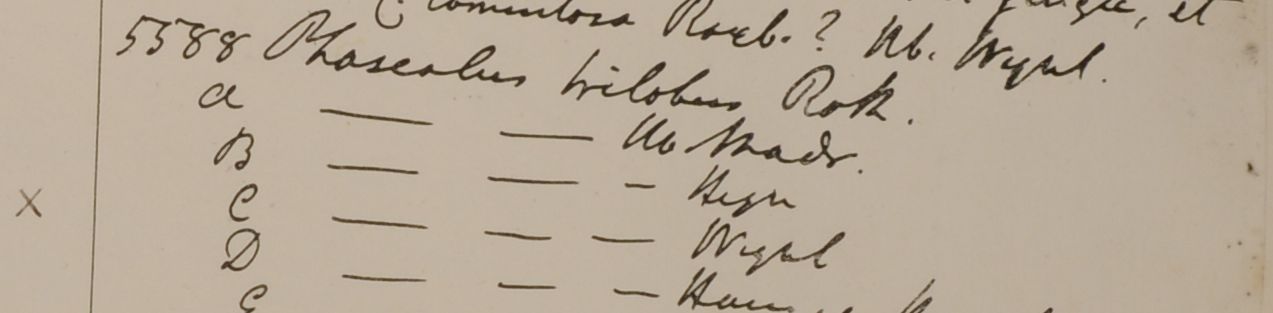 tomentosa Roxb. ? Hb. Wight.
5588 Phaseolus trilobus Roth.
a — — Hb Madr.
B — — - Heyn
C — — — Wight
D — — — Ham
E